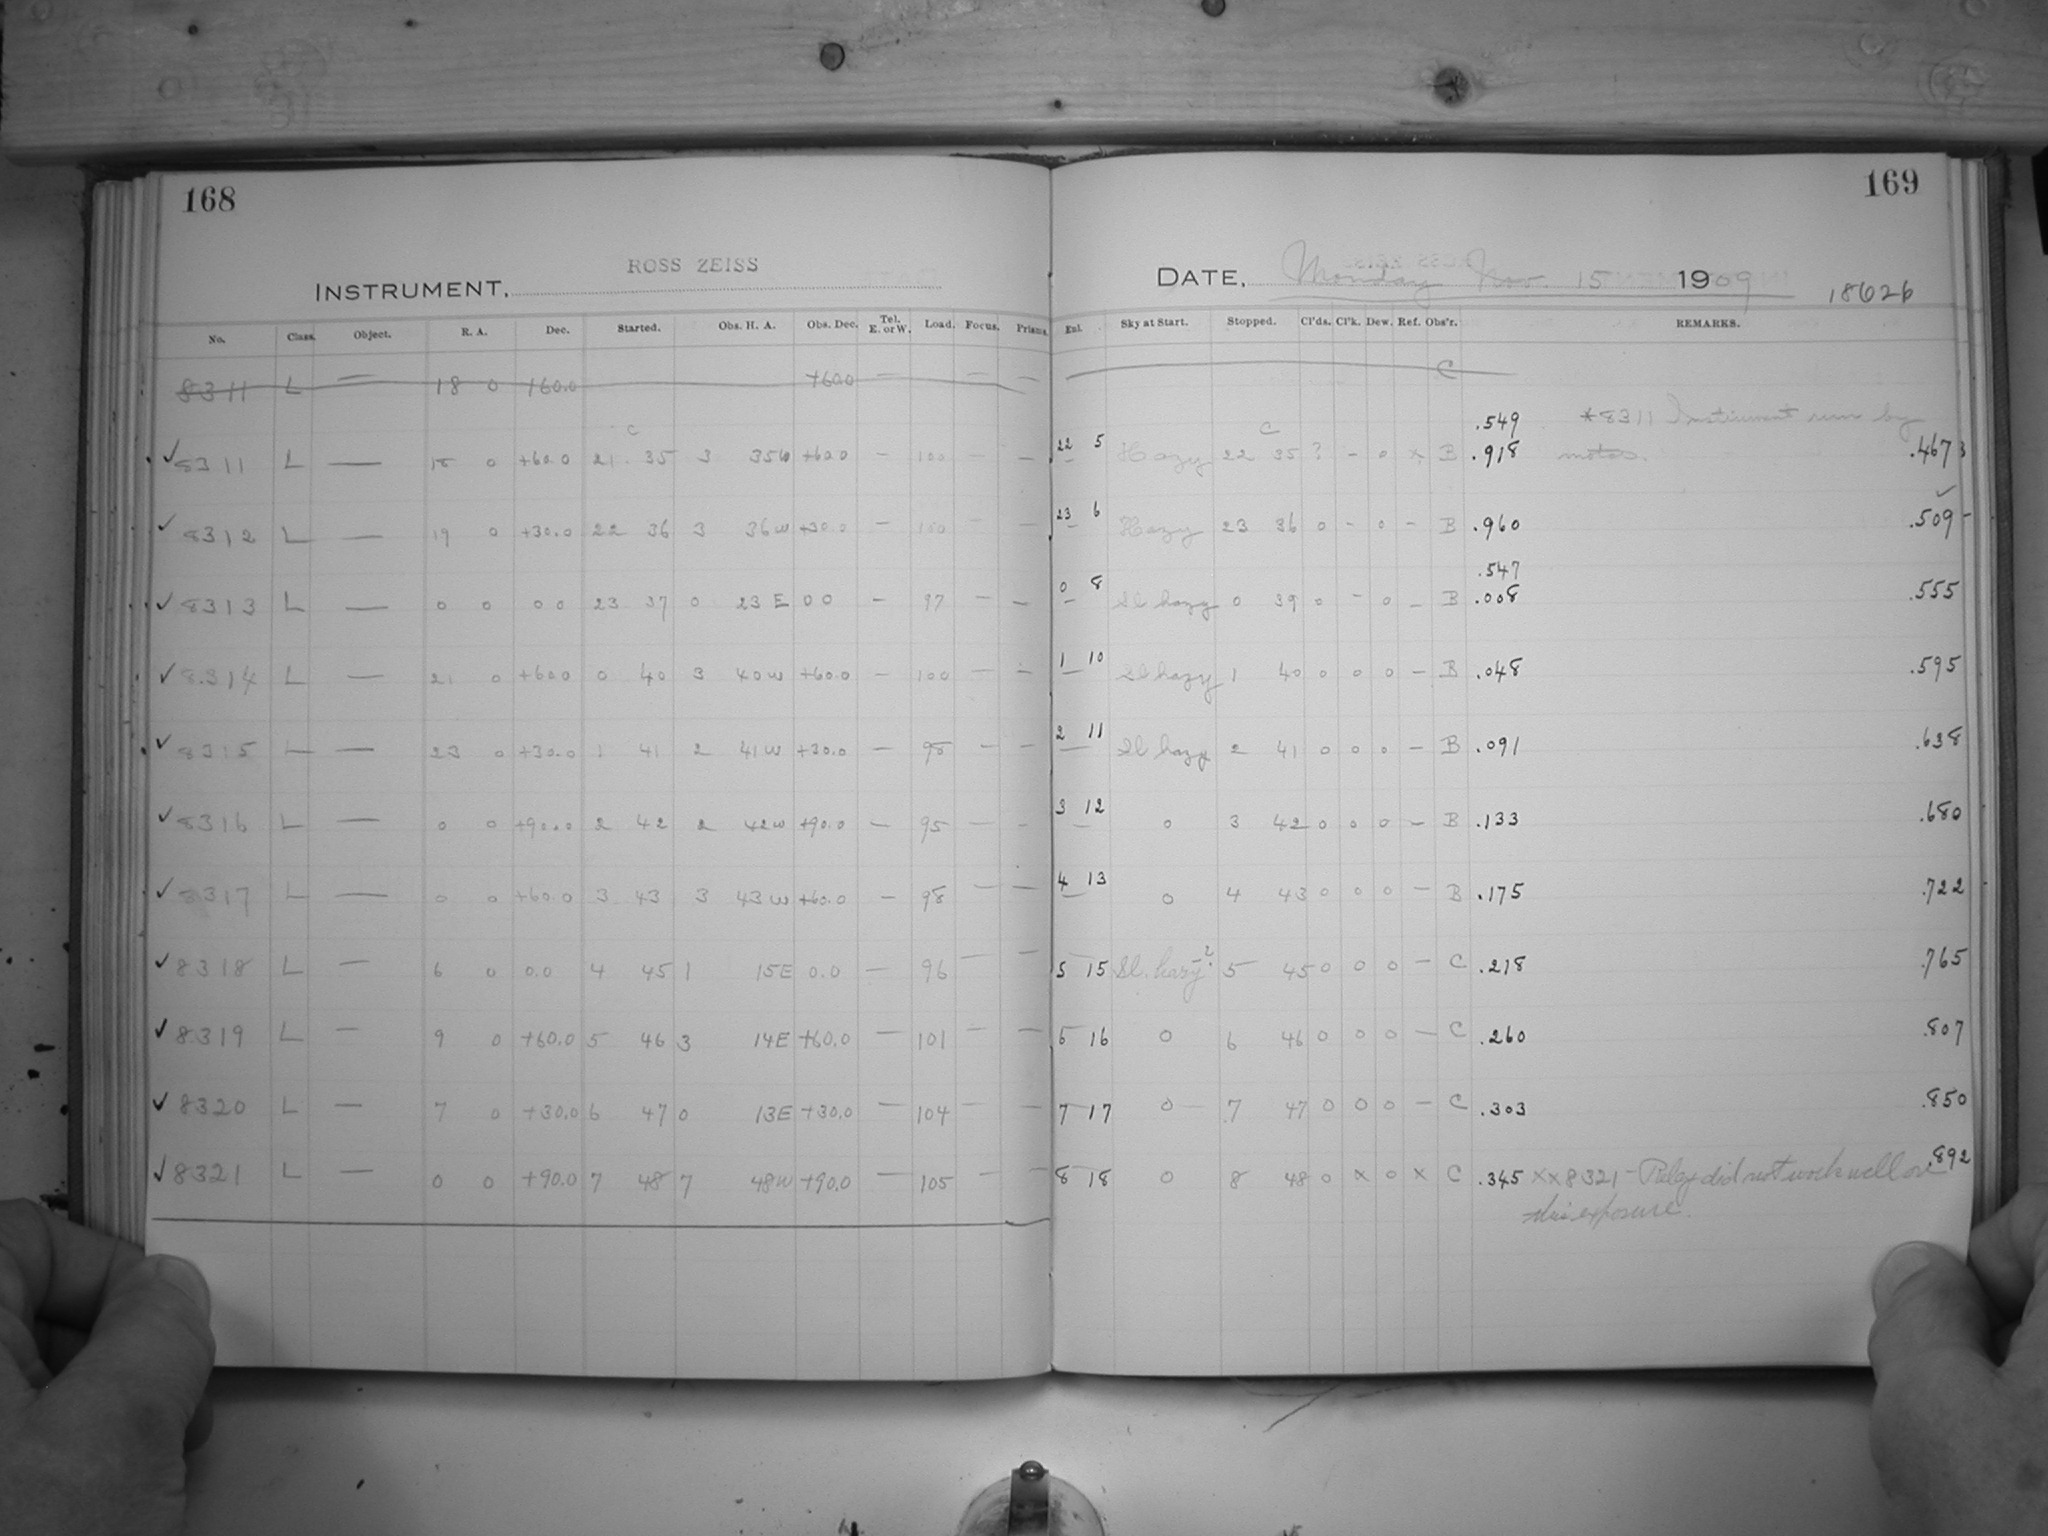 168
169
ROSS ZEISS
INSTRUMENT,
DATE, Monday Nov. 15 1909
18626
No. Class. Object. R. A. Dec. Started. Obs. H. A. Obs. Dec. Tel. E. or W. Load. Focus. Prisms. Enl. Sky at Start. Stopped. Cl'ds. Cl'k. Dew. Ref. Obs'r. REMARKS.
8311 L — 18 0 +60.0 +60.0 — — — C
C C .549 *8311 Instrument run by
✓ 8311 L — 18 0 +60.0 21 35 3 35W +60.0 — 100 — — 22 5 Hazy 22 35 ? - 0 x B .918 motor. .4673
✓ 8312 L — 19 0 +30.0 22 36 3 36W +30.0 — 100 — — 23 6 Hazy 23 36 0 - 0 - B .960 .509
.547
✓ 8313 L — 0 0 0 0 23 37 0 23 E 0 0 — 97 — — 0 8 Sl hazy 0 39 0 - 0 - B .008 .555
✓ 8314 L — 21 0 +60.0 0 40 3 40W +60.0 — 100 — — 1 10 Sl hazy 1 40 0 0 0 - B .048 .595
✓ 8315 L — 23 0 +30.0 1 41 2 41W +30.0 — 98 — — 2 11 Sl hazy 2 41 0 0 0 - B .091 .638
✓ 8316 L — 0 0 +90.0 2 42 2 42W +90.0 — 95 — — 3 12 0 3 42 0 0 0 - B .133 .680
✓ 8317 L — 0 0 +60.0 3 43 3 43W +60.0 — 98 — — 4 13 0 4 43 0 0 0 - B .175 .722
✓ 8318 L — 6 0 0.0 4 45 1 15E 0.0 — 96 — — 5 15 Sl. hazy? 5 45 0 0 0 - C .218 .765
✓ 8319 L — 9 0 +60.0 5 46 3 14E +60.0 — 101 — — 6 16 0 6 46 0 0 0 - C .260 .807
✓ 8320 L — 7 0 +30.0 6 47 0 13E +30.0 — 104 — — 7 17 0 7 47 0 0 0 - C .303 .850
✓ 8321 L — 0 0 +90.0 7 48 7 48W +90.0 — 105 — — 8 18 0 8 48 0 x 0 x C .345 xx8321 - Relay did not work well on .892
this exposure.